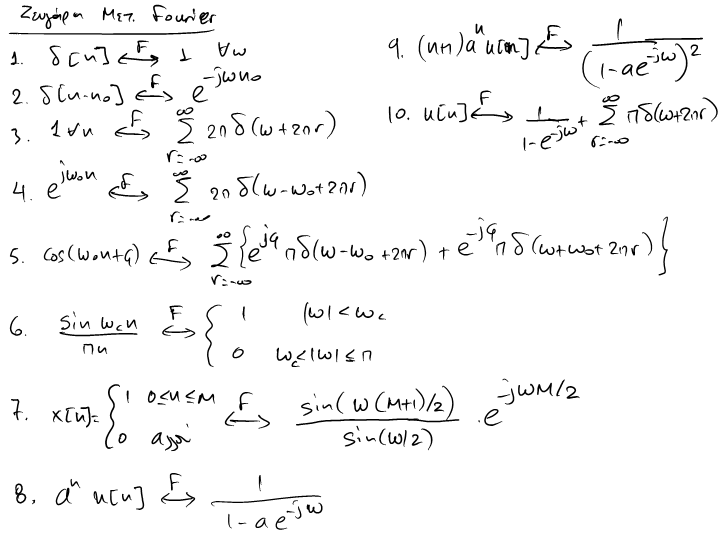 Ζευγάρη Μετ. Fourier
1. δ[n] ⟷F 1 ∀ω
2. δ[n-n₀] ⟷F e^{-jωn₀}
3. 1 ∀n ⟷F Σ_{r=-∞}^{∞} 2π δ(ω+2πr)
4. e^{jω₀n} ⟷F Σ_{r=-∞}^{∞} 2π δ(ω-ω₀+2πr)
5. cos(ω₀n+φ) ⟷F Σ_{r=-∞}^{∞} {e^{jφ} π δ(ω-ω₀+2πr) + e^{-jφ} π δ(ω+ω₀+2πr)}
6. sin ω_c n / πn ⟷F { 1 |ω|<ω_c
0 ω_c<|ω|≤π
7. x[n]= { 1 0≤n≤M ⟷F sin(ω(M+1)/2) / sin(ω/2) · e^{-jωM/2}
0 αλλού
8. aⁿ u[n] ⟷F 1 / (1-a e^{-jω})
9. (n+1)aⁿu[n] ⟷F 1 / (1-ae^{-jω})²
10. u[n] ⟷F 1 / (1-e^{-jω}) + Σ_{r=-∞}^{∞} πδ(ω+2πr)